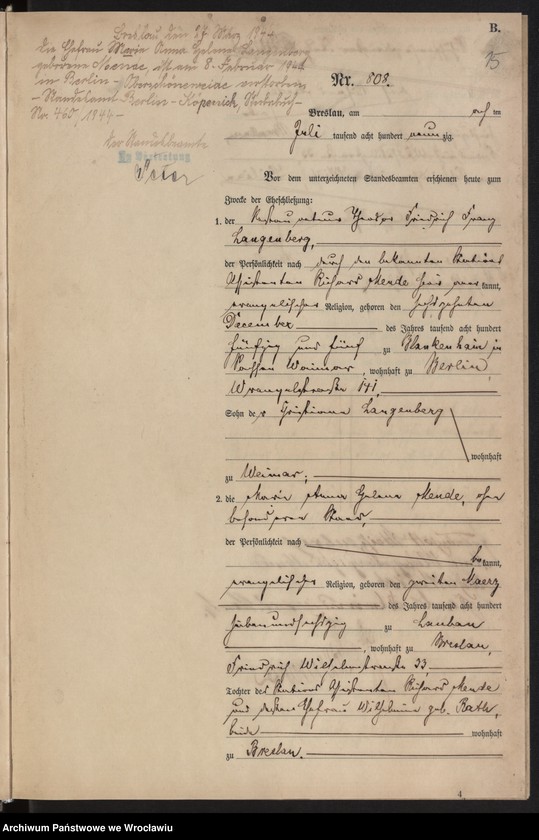 Breslau, den 27. März 1944
Die Ehefrau Maria Anna Helene Langenberg
geborene Mende, ist am 8. Februar 1944
in Berlin - verstorben
- Standesamt Berlin - Köpenick, Sterbebuch -
No. 460/1944 -
Der Standesbeamte
In Vertretung
B.
15
Nr. 808.
Breslau, am ach ten
Juli tausend acht hundert neun zig.
Vor dem unterzeichneten Standesbeamten erschienen heute zum
Zwecke der Eheschließung:
1. der Theodor Friedrich Franz
Langenberg,
der Persönlichkeit nach durch den bekannten Stations
Assistenten Richard Mende hier aner kannt,
evangelischer Religion, geboren den sechszehnten
December des Jahres tausend acht hundert
fünfzig und fünf zu Blankenhain in
Sachsen Weimar, wohnhaft zu Berlin,
Wrangelstraße 141,
Sohn der Christiane Langenberg
wohnhaft
zu Weimar;
2. die Maria Anna Helene Mende, ohne
besonderen Stand,
der Persönlichkeit nach
be kannt,
evangelischer Religion, geboren den zweiten Maerz
des Jahres tausend acht hundert
siebenundsechszig zu Lauban
, wohnhaft zu Breslau,
Friedrich Wilhelmstraße 33,
Tochter des Stations Assistenten Richard Mende
und dessen Ehefrau Wilhelmine geb. Rath,
beide wohnhaft
zu Breslau.
4
Archiwum Państwowe we Wrocławiu